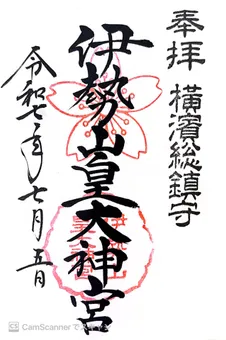 奉拝 横濱総鎮守
伊勢山皇大神宮
令和七年七月五日
CamScanner でスキャン